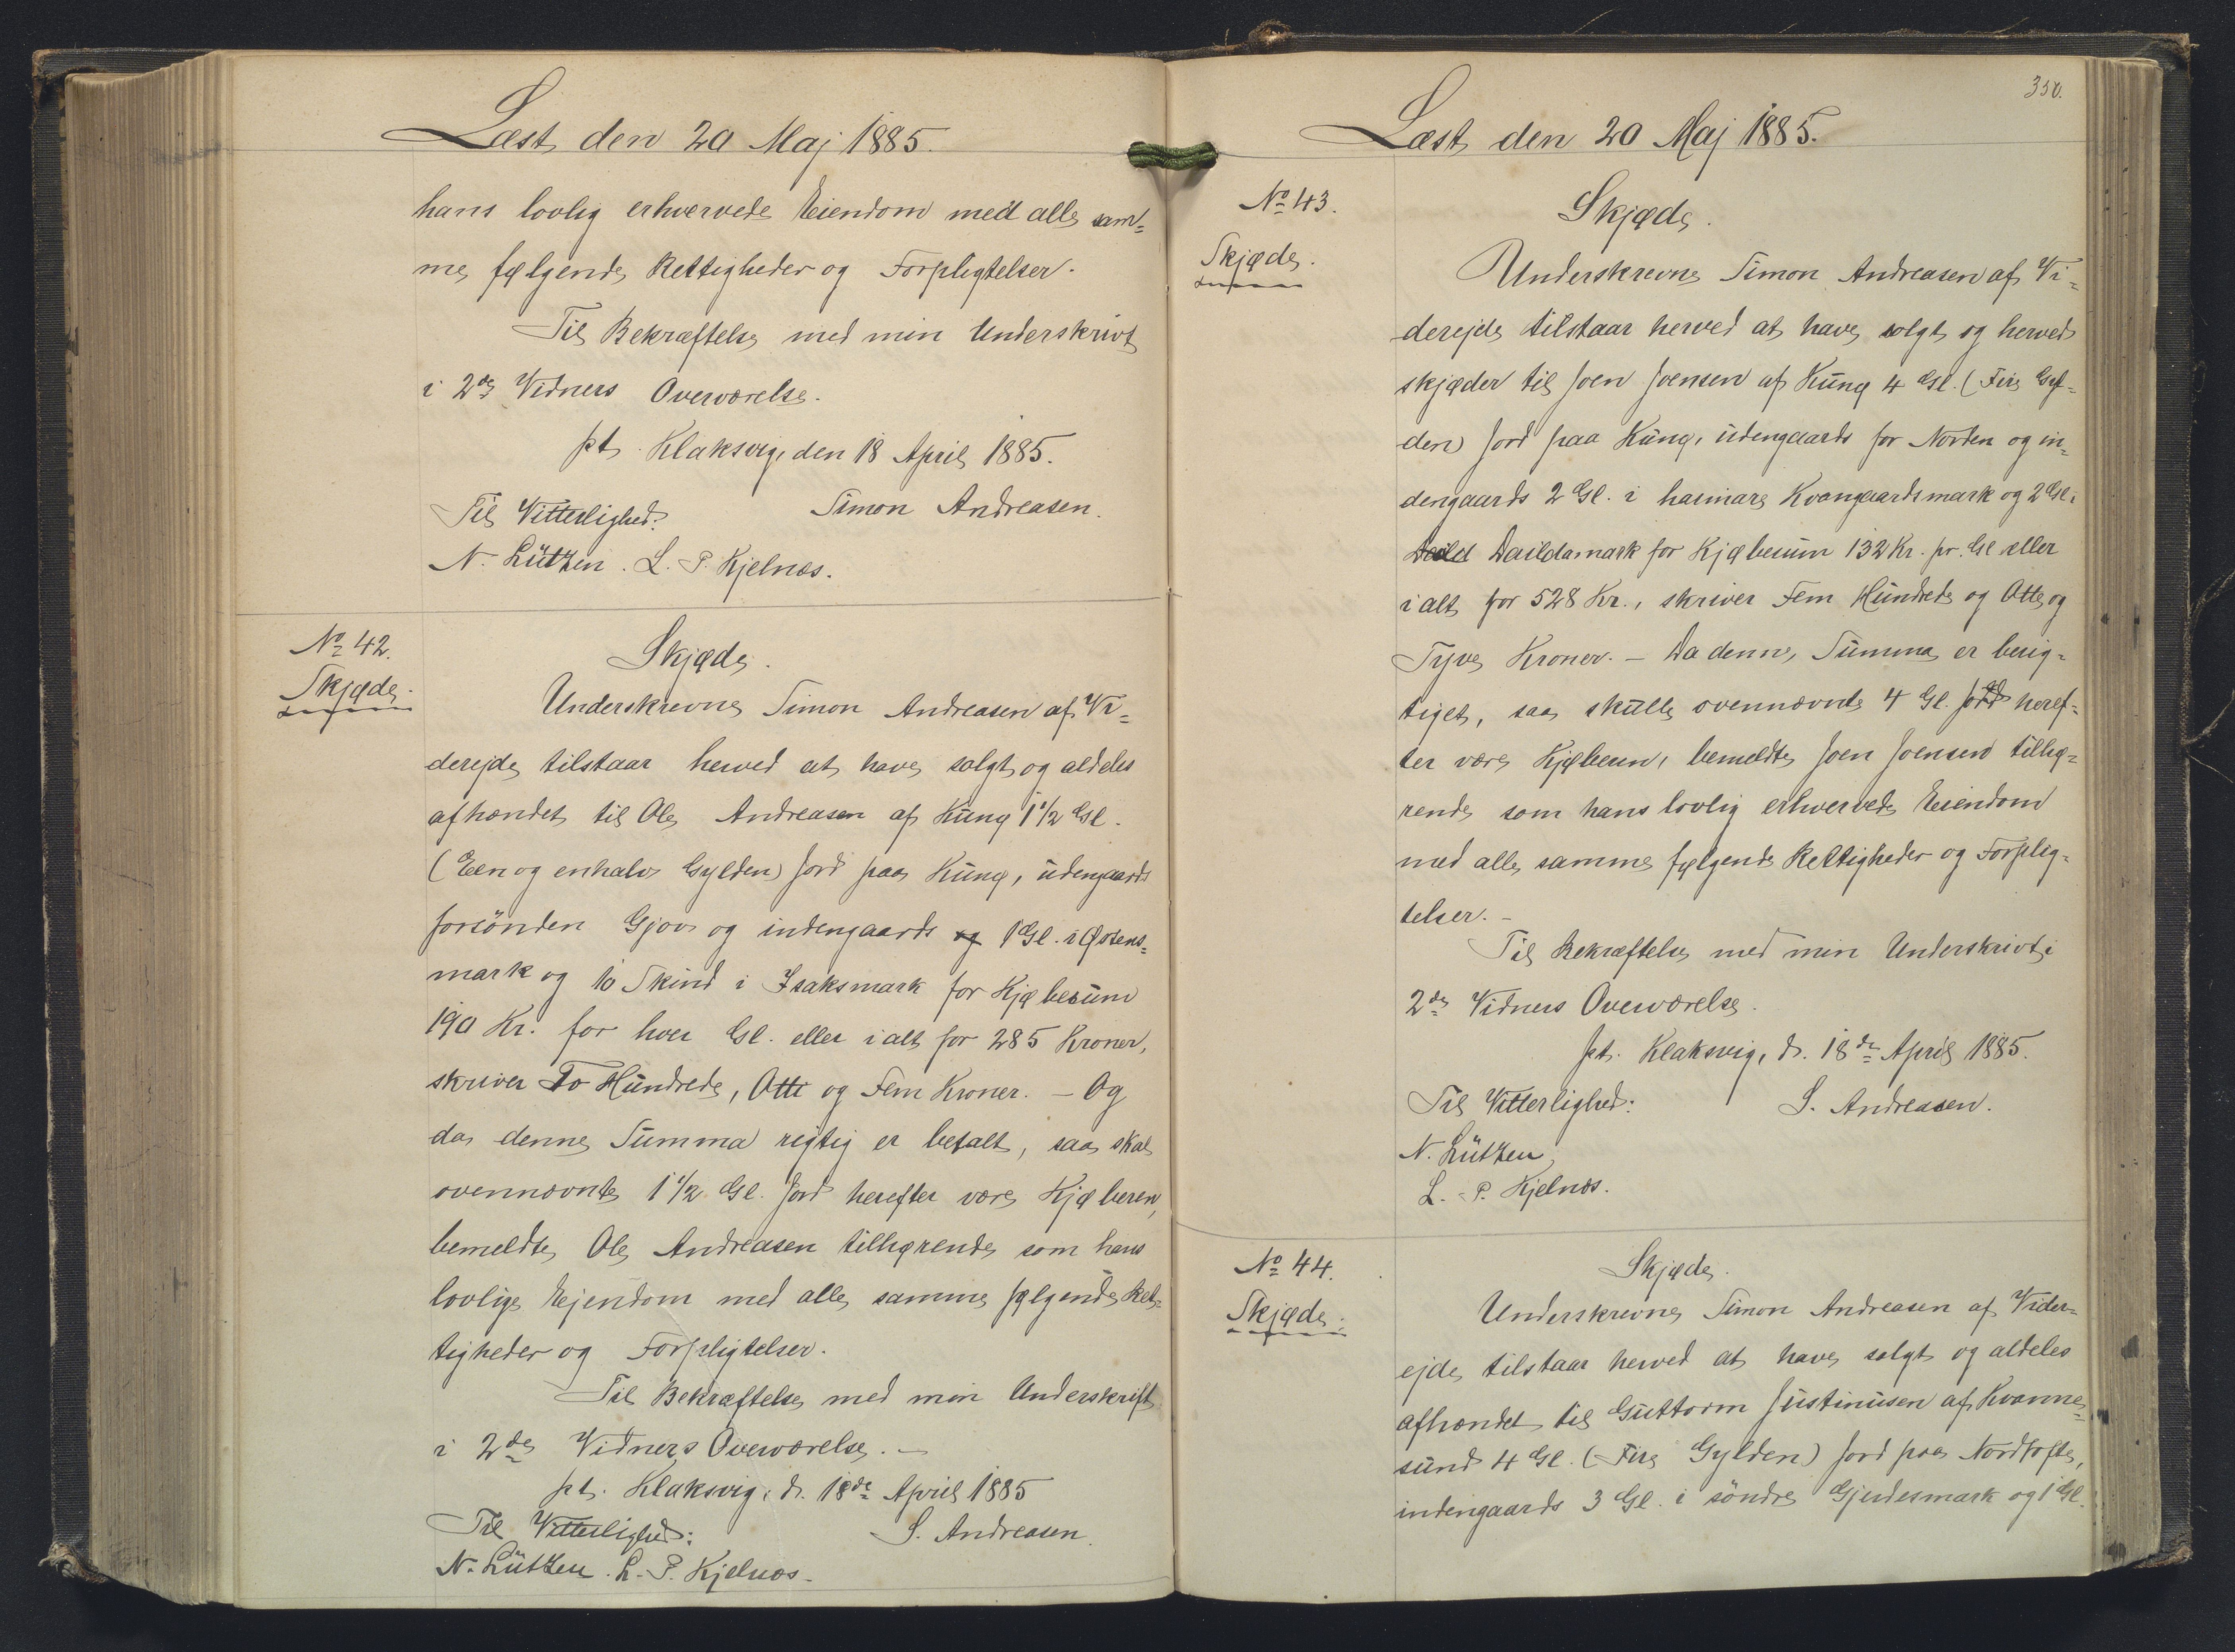 Læst den 20 Maj 1885.
hans lovlig erhvervede Eiendom med alle sam-
me følgende Rettigheder og Forpligtelser.
Til Bekræftelse med min Underskrivt
i 2de Vidners Overværelse.
pt. Klaksvig, den 18 April 1885.
Til Vitterlighed: Simon Andreasen.
N. Lützen. L. P. Kjelnæs.
No 42.
Skjøde.
Skjøde.
Underskrevne Simon Andreasen af Vi-
derejde tilstaar herved at have solgt og aldeles
afhændet til Ole Andreasen af Kunø 1 1/2 Gl.
(Een og enhalv Gylden) Jord paa Kunø, udengaards
forsönden Gjov og indengaards 1 Gl. i Østens-
mark og 10 Skind i Isaksmark for Kjøbesum
190 Kr. for hver Gl. eller ialt for 285 Kroner,
skriver To Hundrede, Otti og Fem Kroner. – Og
da denne Summa rigtig er betalt, saa skal
ovennævnte 1 1/2 Gl. Jord herefter være Kjøberen,
bemeldte Ole Andreasen tilhørende som hans
lovlige Ejendom med alle samme følgende Ret-
tigheder og Forpligtelser.
Til Bekræftelse med min Underskrift
i 2de Vidners Overværelse. –
pt. Klaksvig, d. 18de April 1885
Til Vitterlighed: S. Andreasen.
N. Lützen. L. P. Kjelnæs.
350.
Læst den 20 Maj 1885.
No 43.
Skjøde.
Skjøde.
Underskrevne Simon Andreasen af Vi-
derejde tilstaar herved at have solgt og herved
skjøder til Joen Joensen af Kunø 4 Gl. (Fire Gyl-
den) Jord paa Kunø, udengaards for Norden og in-
dengaards 2 Gl. i Kvangaardsmark og 2 Gl. i
Daildamark for Kjøbesum 132 Kr. pr. Gl eller
ialt for 528 Kr., skriver Fem Hundrede og Otte og
Tyve Kroner. – Da denne Summa er berig-
tiget, saa skulle ovennævnte 4 Gl. Jord heref-
ter være Kjøberen, bemeldte Joen Joensen tilhø-
rende som hans lovlig erhvervede Eiendom
med alle samme følgende Rettigheder og Forplig-
telser. –
Til Bekræftelse med min Underskrivt i
2de Vidners Overværelse.
pt. Klaksvig, d. 18de April 1885.
Til Vitterlighed: S. Andreasen.
N. Lützen
L. P. Kjelnæs.
No 44.
Skjøde.
Skjøde.
Underskrevne Simon Andreasen af Vider-
ejde tilstaar herved at have solgt og aldeles
afhændet til Guttorm Justinusen af Kvanne-
sund 4 Gl. (Fire Gylden) Jord paa Nordtofte,
indengaards 3 Gl. i söndre Gjerdesmark og 1 Gl.